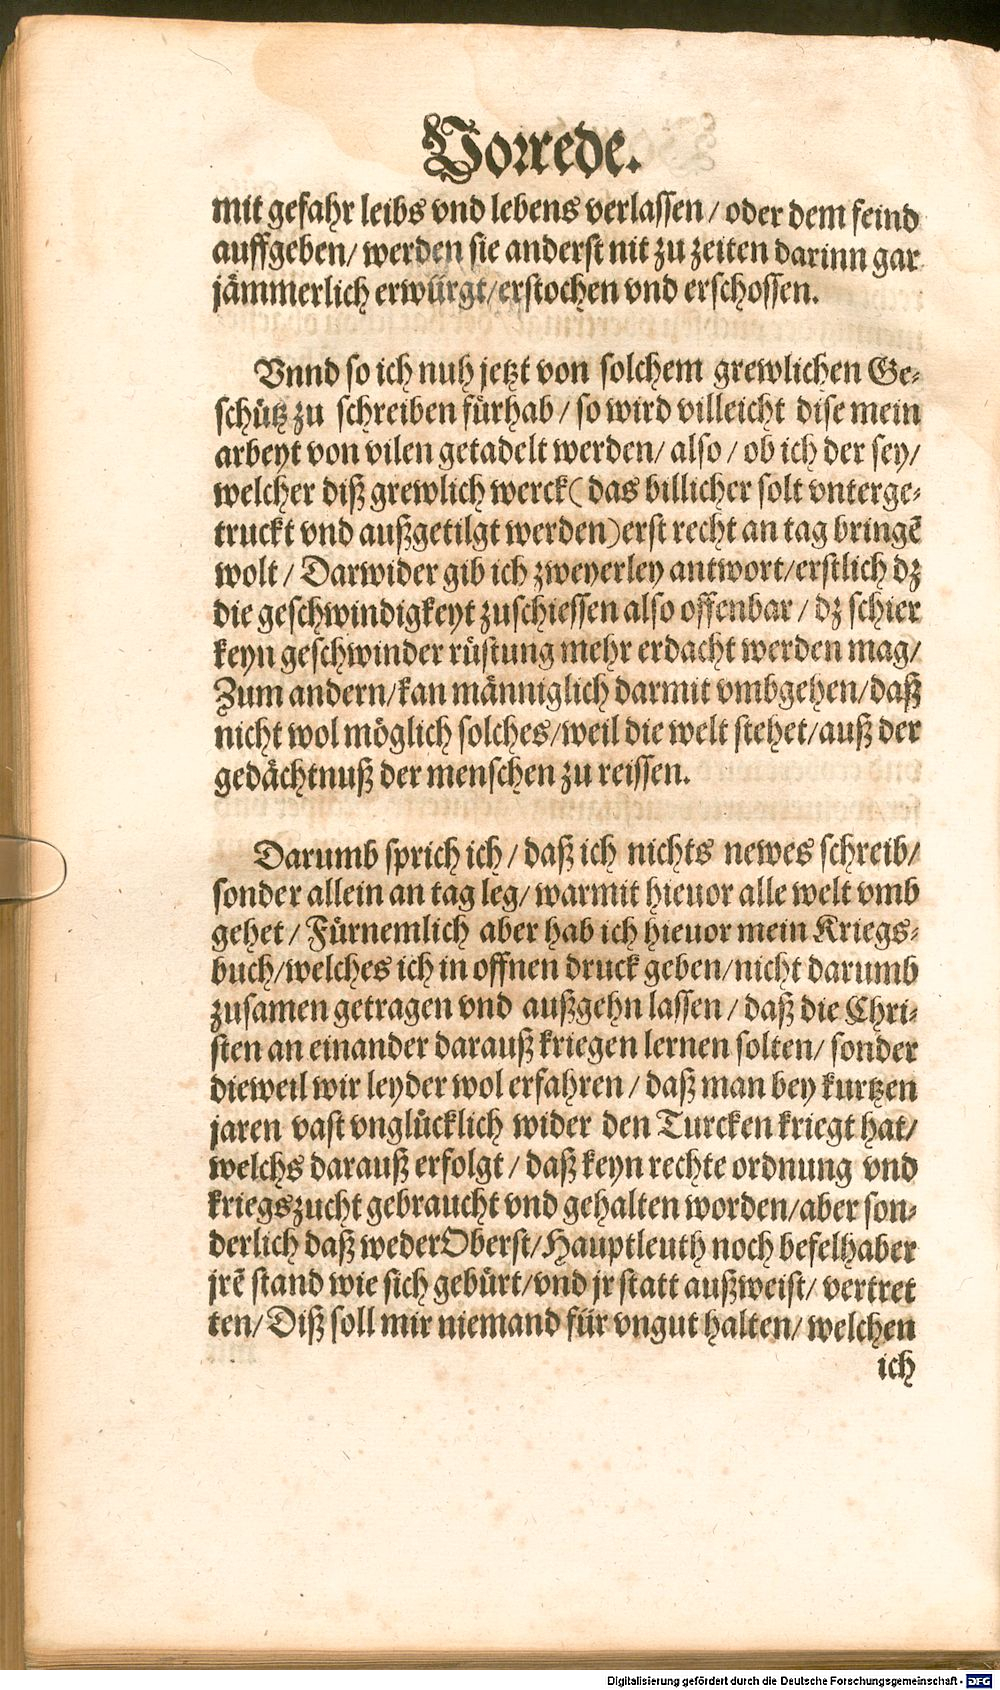 Vorrede.
mit gefahr leibs vnd lebens verlassen / oder dem feind
auffgeben / werden sie anderst nit zu zeiten darinn gar
jämmerlich erwürgt / erstochen vnd erschossen.
Vnnd so ich nuh jetzt von solchem grewlichen Ge-
schütz zu schreiben fürhab / so wird villeicht dise mein
arbeyt von vilen getadelt werden / also / ob ich der sey /
welcher diß grewlich werck ( das billicher solt vnterge-
truckt vnd außgetilgt werden ) erst recht an tag bringē
wolt / Darwider gib ich zweyerley antwort / erstlich dz
die geschwindigkeyt zuschiessen also offenbar / dz schier
keyn geschwinder rüstung mehr erdacht werden mag /
Zum andern / kan männiglich darmit vmbgehen / daß
nicht wol möglich solches / weil die welt stehet / auß der
gedächtnuß der menschen zu reissen.
Darumb sprich ich / daß ich nichts newes schreib /
sonder allein an tag leg / warmit hieuor alle welt vmb
gehet / Fürnemlich aber hab ich hieuor mein Kriegs-
buch / welches ich in offnen druck geben / nicht darumb
zusamen getragen vnd außgehn lassen / daß die Chri-
sten an einander darauß kriegen lernen solten / sonder
dieweil wir leyder wol erfahren / daß man bey kurtzen
jaren vast vnglücklich wider den Turcken kriegt hat /
welchs darauß erfolgt / daß keyn rechte ordnung vnd
kriegszucht gebraucht vnd gehalten worden / aber son-
derlich daß weder Oberst / Hauptleuth noch befelhaber
jrē stand wie sich gebürt / vnd jr statt außweist / vertret
ten / Diß soll mir niemand für vngut halten / welchen
ich
Digitalisierung gefördert durch die Deutsche Forschungsgemeinschaft - DFG